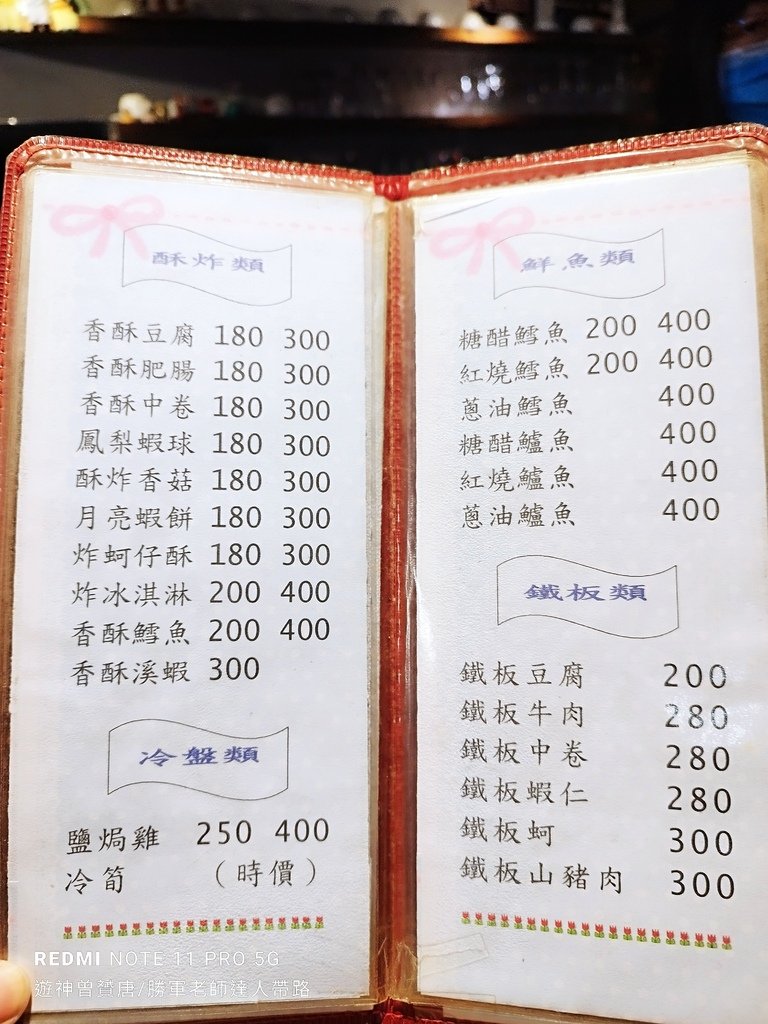 酥炸類
香酥豆腐 180 300
香酥肥腸 180 300
香酥中卷 180 300
鳳梨蝦球 180 300
酥炸香菇 180 300
月亮蝦餅 180 300
炸蚵仔酥 180 300
炸冰淇淋 200 400
香酥鱈魚 200 400
香酥溪蝦 300
冷盤類
鹽焗雞 250 400
冷筍 （時價）
鮮魚類
糖醋鱈魚 200 400
紅燒鱈魚 200 400
蔥油鱈魚 400
糖醋鱸魚 400
紅燒鱸魚 400
蔥油鱸魚 400
鐵板類
鐵板豆腐 200
鐵板牛肉 280
鐵板中卷 280
鐵板蝦仁 280
鐵板蚵 300
鐵板山豬肉 300
REDMI NOTE 11 PRO 5G
遊神曾贊唐/勝軍老師達人帶路